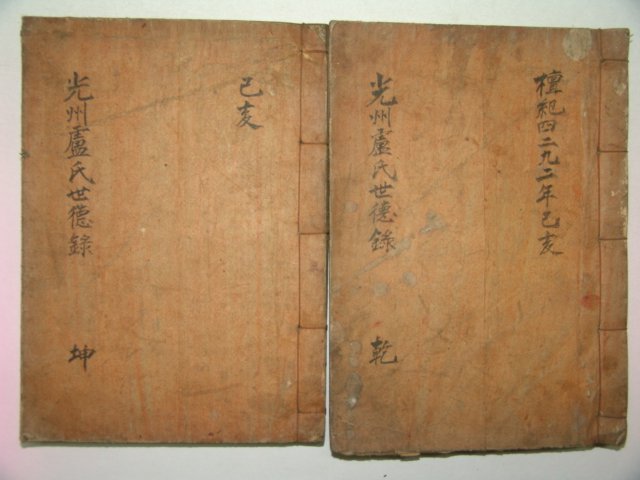 檀紀四二九二年己亥
光州盧氏世德錄
乾
己亥
光州盧氏世德錄
坤